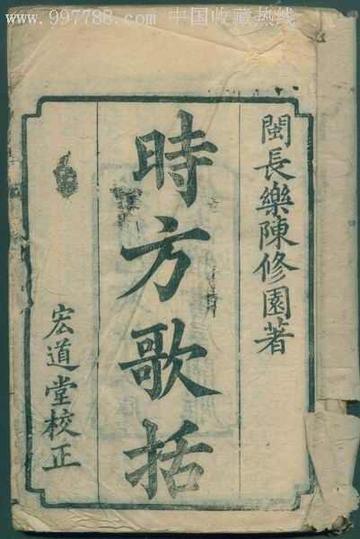 www.997788.com 中国收藏热线
閩長樂陳修園著
時方歌括
宏道堂校正